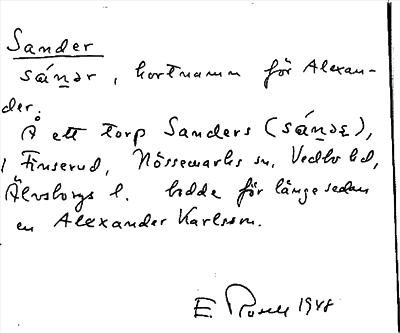 Sander
sánər, kortnamn för Alexan-
der.
Å ett torp Sanders (sánəʂ),
i Finserud, Nössemarks sn, Vedbo hd,
Älvsborgs l. bodde för länge sedan
en Alexander Karlsson.
E. 1948